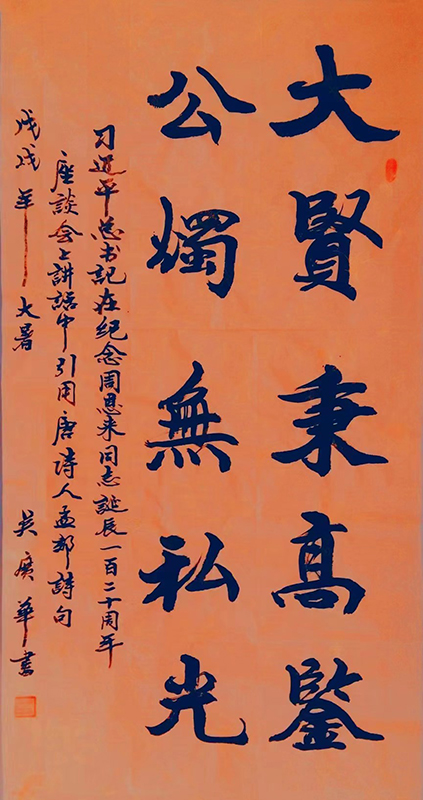 大賢秉高鑒
公燭無私光
习近平总书記在纪念周恩来同志誕辰一百二十周年
座談会上讲話中引用唐诗人孟郊詩句
戊戌年大暑 吴廣華書